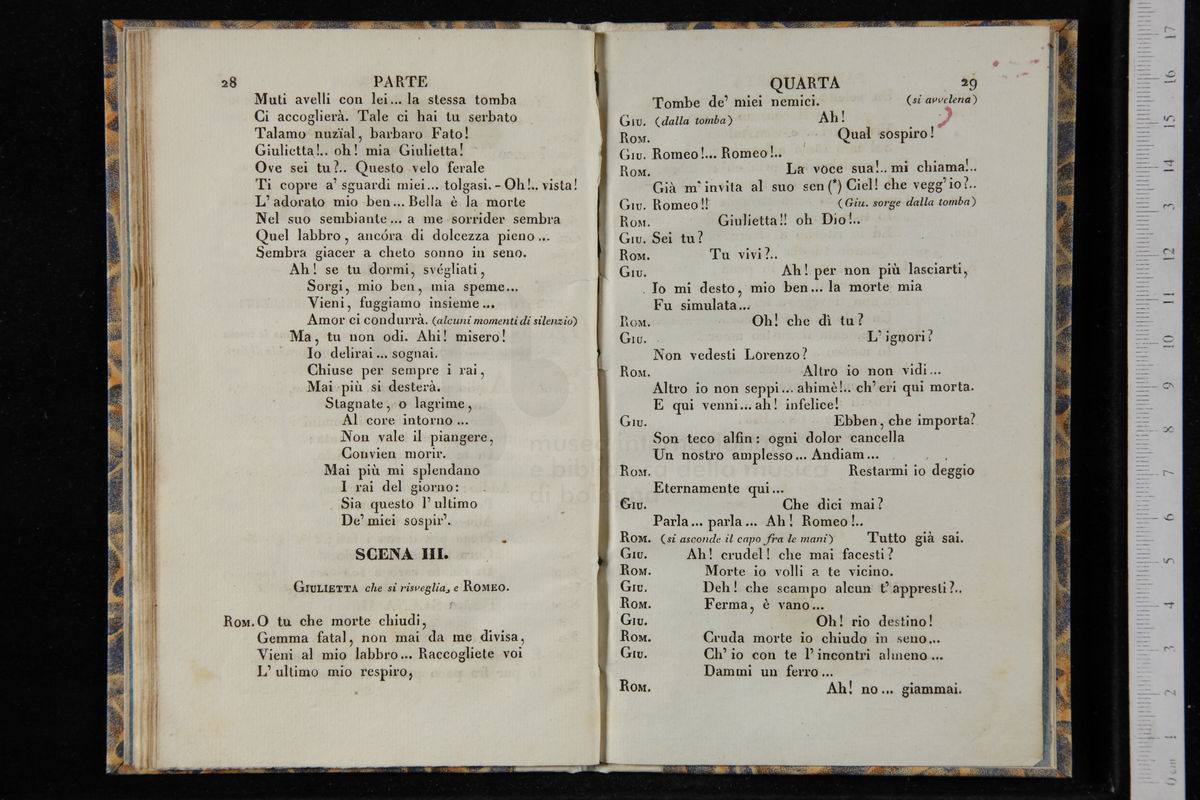 28 PARTE
Muti avelli con lei... la stessa tomba
Ci accoglierà. Tale ci hai tu serbato
Talamo nuzïal, barbaro Fato!
Giulietta!.. oh! mia Giulietta!
Ove sei tu?.. Questo velo ferale
Ti copre a' sguardi miei... tolgasi. - Oh!.. vista!
L' adorato mio ben... Bella è la morte
Nel suo sembiante... a me sorrider sembra
Quel labbro, ancóra di dolcezza pieno...
Sembra giacer a cheto sonno in seno.
Ah! se tu dormi, svégliati,
Sorgi, mio ben, mia speme...
Vieni, fuggiamo insieme...
Amor ci condurrà. (alcuni momenti di silenzio)
Ma, tu non odi. Ahi! misero!
Io delirai... sognai.
Chiuse per sempre i rai,
Mai più si desterà.
Stagnate, o lagrime,
Al core intorno...
Non vale il piangere,
Convien morir.
Mai più mi splendano
I rai del giorno:
Sia questo l' ultimo
De' miei sospir'.
SCENA III.
GIULIETTA che si risveglia, e ROMEO.
ROM. O tu che morte chiudi,
Gemma fatal, non mai da me divisa,
Vieni al mio labbro... Raccogliete voi
L' ultimo mio respiro,
QUARTA 29
Tombe de' miei nemici. (si avvelena)
GIU. (dalla tomba) Ah!
ROM. Qual sospiro!
GIU. Romeo!... Romeo!..
ROM. La voce sua!.. mi chiama!..
Già m' invita al suo sen (*) Ciel! che vegg' io?..
GIU. Romeo!! (Giu. sorge dalla tomba)
ROM. Giulietta!! oh Dio!..
GIU. Sei tu?
ROM. Tu vivi?..
GIU. Ah! per non più lasciarti,
Io mi desto, mio ben... la morte mia
Fu simulata...
ROM. Oh! che dì tu?
GIU. L' ignori?
Non vedesti Lorenzo?
ROM. Altro io non vidi...
Altro io non seppi... ahimè!.. ch' eri qui morta.
E qui venni... ah! infelice!
GIU. Ebben, che importa?
Son teco alfin: ogni dolor cancella
Un nostro amplesso... Andiam...
ROM. Restarmi io deggio
Eternamente qui...
GIU. Che dici mai?
Parla... parla... Ah! Romeo!..
ROM. (si asconde il capo fra le mani) Tutto già sai.
GIU. Ah! crudel! che mai facesti?
ROM. Morte io volli a te vicino.
GIU. Deh! che scampo alcun t' appresti?..
ROM. Ferma, è vano...
GIU. Oh! rio destino!
ROM. Cruda morte io chiudo in seno...
GIU. Ch' io con te l' incontri almeno...
Dammi un ferro...
ROM. Ah! no... giammai.
museo internazionale
e biblioteca della musica
di bologna
0 cm 1 2 3 4 5 6 7 8 9 10 11 12 13 14 15 16 17